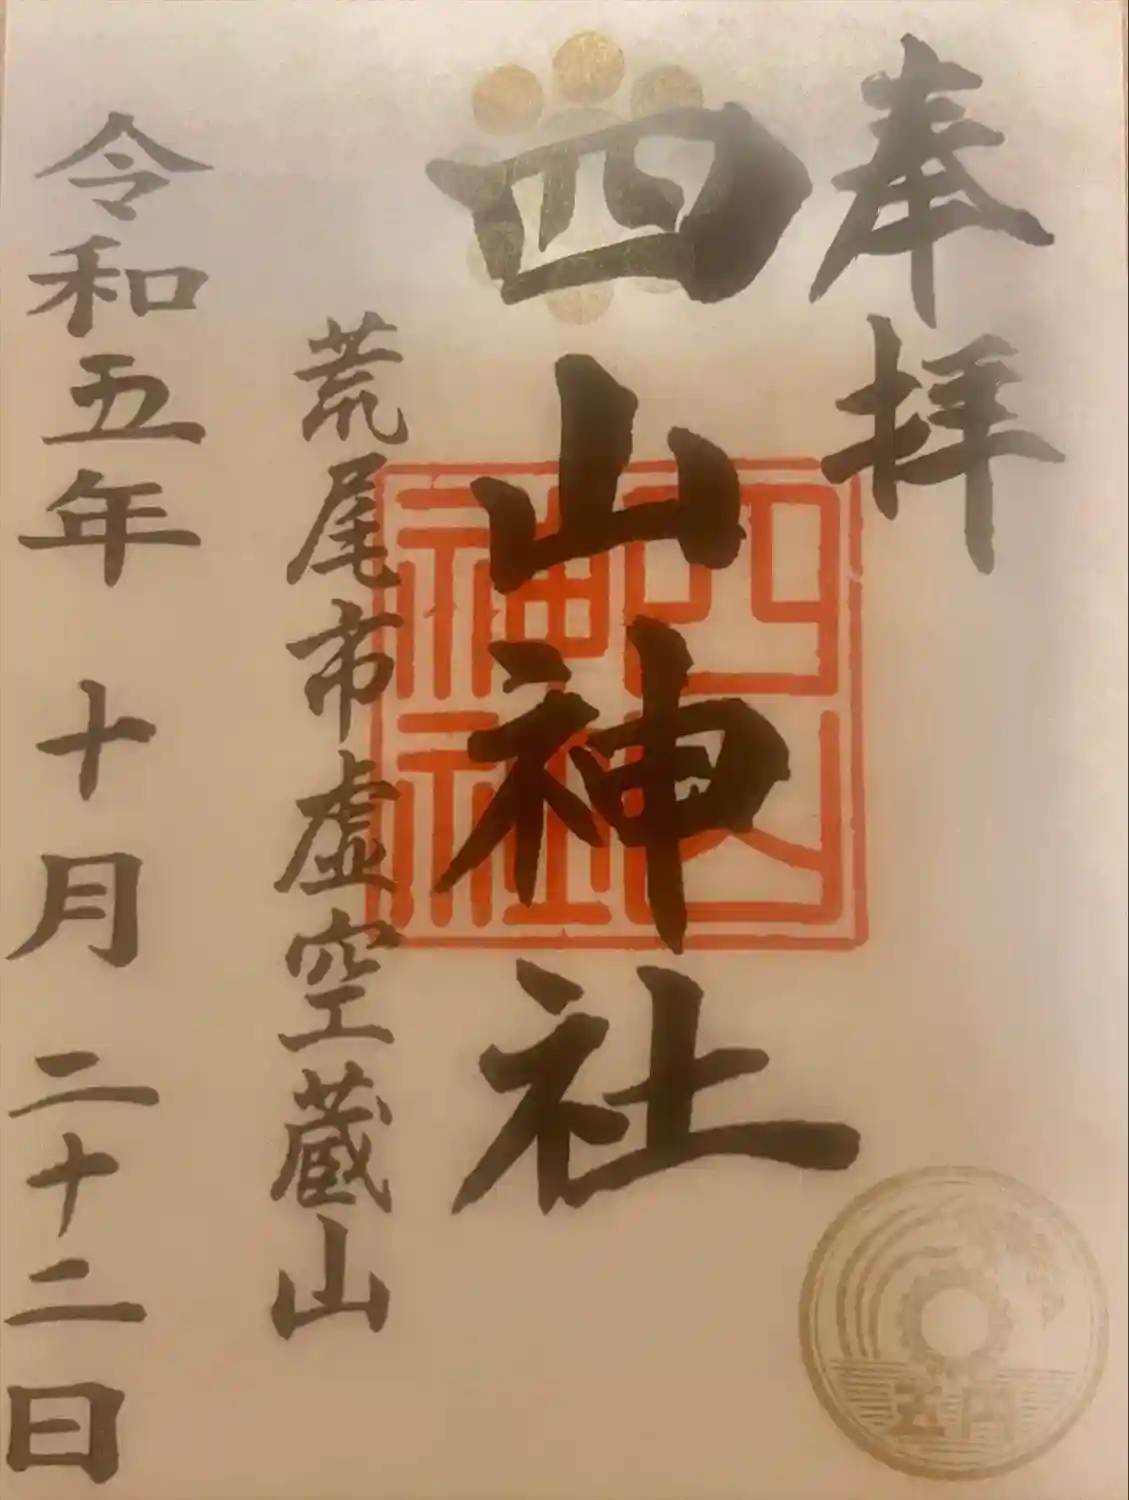 奉拝
四山神社
四山
神社
荒尾市虚空蔵山
令和五年 十月 二十二日
五円